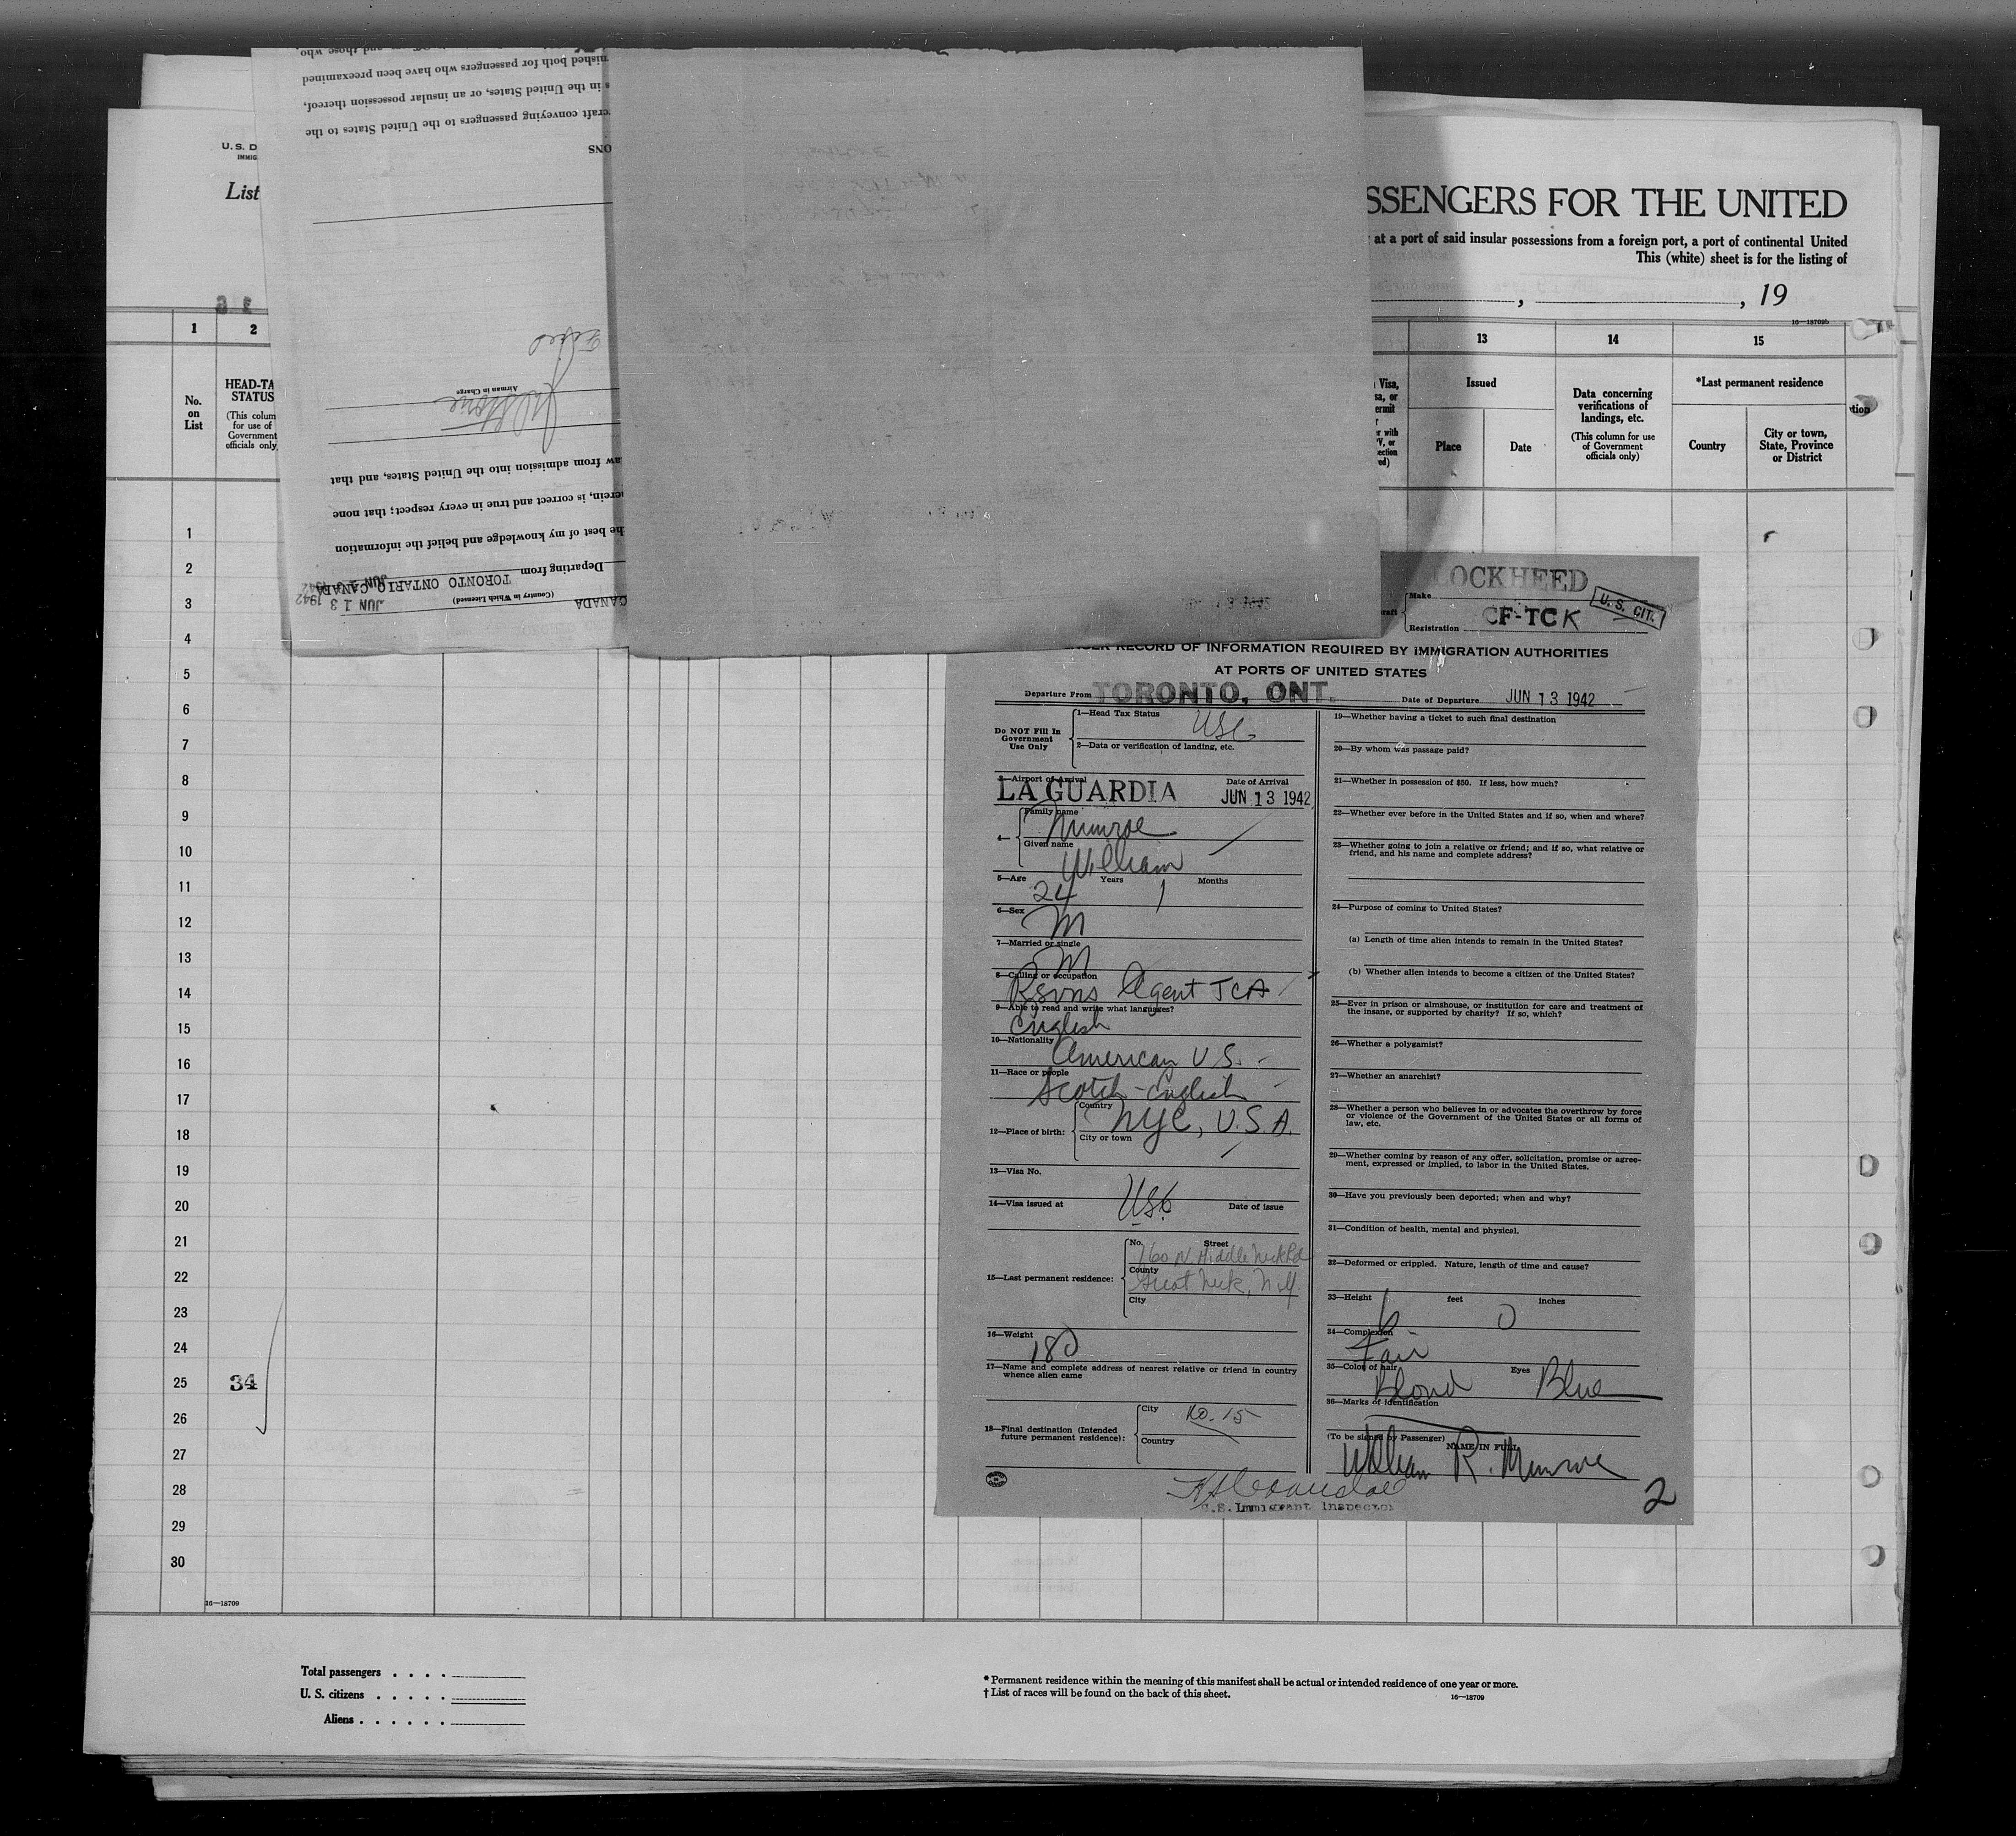 U. S. D
IMMIG
List
SSENGERS FOR THE UNITED
at a port of said insular possessions from a foreign port, a port of continental United
This (white) sheet is for the listing of
, , 19
16—18709b
1 2
No.
on
List
HEAD-TA
STATUS
(This colum
for use of
Government
officials only
13 14 15
Visa,
sa, or
ermit
r
er with
PV, or
ection
ed)
Issued
Place Date
Data concerning
verifications of
landings, etc.
(This column for use
of Government
officials only)
*Last permanent residence
Country
City or town,
State, Province
or District
tion
1
2
3
4
5
6
7
8
9
10
11
12
13
14
15
16
17
18
19
20
21
22
23
24
25 34
26
27
28
29
30
16—18709
Total passengers . . . .
U. S. citizens . . . . .
Aliens . . . . . .
* Permanent residence within the meaning of this manifest shall be actual or intended residence of one year or more.
† List of races will be found on the back of this sheet.
16—18709
CANADA
(Country in Which Licensed)
JUN 13 1942
Departing from TORONTO ONTARIO CANADA JUN 13 1942
he best of my knowledge and belief the information
erein, is correct and true in every respect; that none
aw from admission into the United States, and that
Airman in Charge
ONS
craft conveying passengers to the United States to the
s in the United States, or an insular possession thereof,
nished both for passengers who have been preexamined
and those who
LOCKHEED
raft
Make
Registration CF-TCK
U. S. CIT.
RECORD OF INFORMATION REQUIRED BY IMMIGRATION AUTHORITIES
AT PORTS OF UNITED STATES
Departure From TORONTO, ONT. Date of Departure JUN 13 1942
Do NOT Fill In
Government
Use Only
1—Head Tax Status USC
2—Data or verification of landing, etc.
3—Airport of Arrival Date of Arrival
LA GUARDIA JUN 13 1942
4— Family name
Munroe
Given name
William
5—Age 24 Years 1 Months
6—Sex M
7—Married or single
M
8—Calling or occupation
Rsvns Agent TCA
9—Able to read and write what languages?
English
10—Nationality American U.S.
11—Race or people
Scotch-English
12—Place of birth:
Country
NYC, U.S.A.
City or town
13—Visa No.
14—Visa issued at USC Date of issue
15—Last permanent residence:
No. Street
160 N Middle Neck Rd
County
Great Neck, NY
City
16—Weight 180
17—Name and complete address of nearest relative or friend in country
whence alien came
18—Final destination (Intended
future permanent residence):
City No. 15
Country
19—Whether having a ticket to such final destination
20—By whom was passage paid?
21—Whether in possession of $50. If less, how much?
22—Whether ever before in the United States and if so, when and where?
23—Whether going to join a relative or friend; and if so, what relative or
friend, and his name and complete address?
24—Purpose of coming to United States?
(a) Length of time alien intends to remain in the United States?
(b) Whether alien intends to become a citizen of the United States?
25—Ever in prison or almshouse, or institution for care and treatment of
the insane, or supported by charity? If so, which?
26—Whether a polygamist?
27—Whether an anarchist?
28—Whether a person who believes in or advocates the overthrow by force
or violence of the Government of the United States or all forms of
law, etc.
29—Whether coming by reason of any offer, solicitation, promise or agree-
ment, expressed or implied, to labor in the United States.
30—Have you previously been deported; when and why?
31—Condition of health, mental and physical.
32—Deformed or crippled. Nature, length of time and cause?
33—Height 6 feet 0 inches
34—Complexion
Fair
35—Color of hair Blond Eyes Blue
36—Marks of identification
(To be signed by Passenger) NAME IN FULL
William R. Munroe
U.S. Immigrant Inspector
2